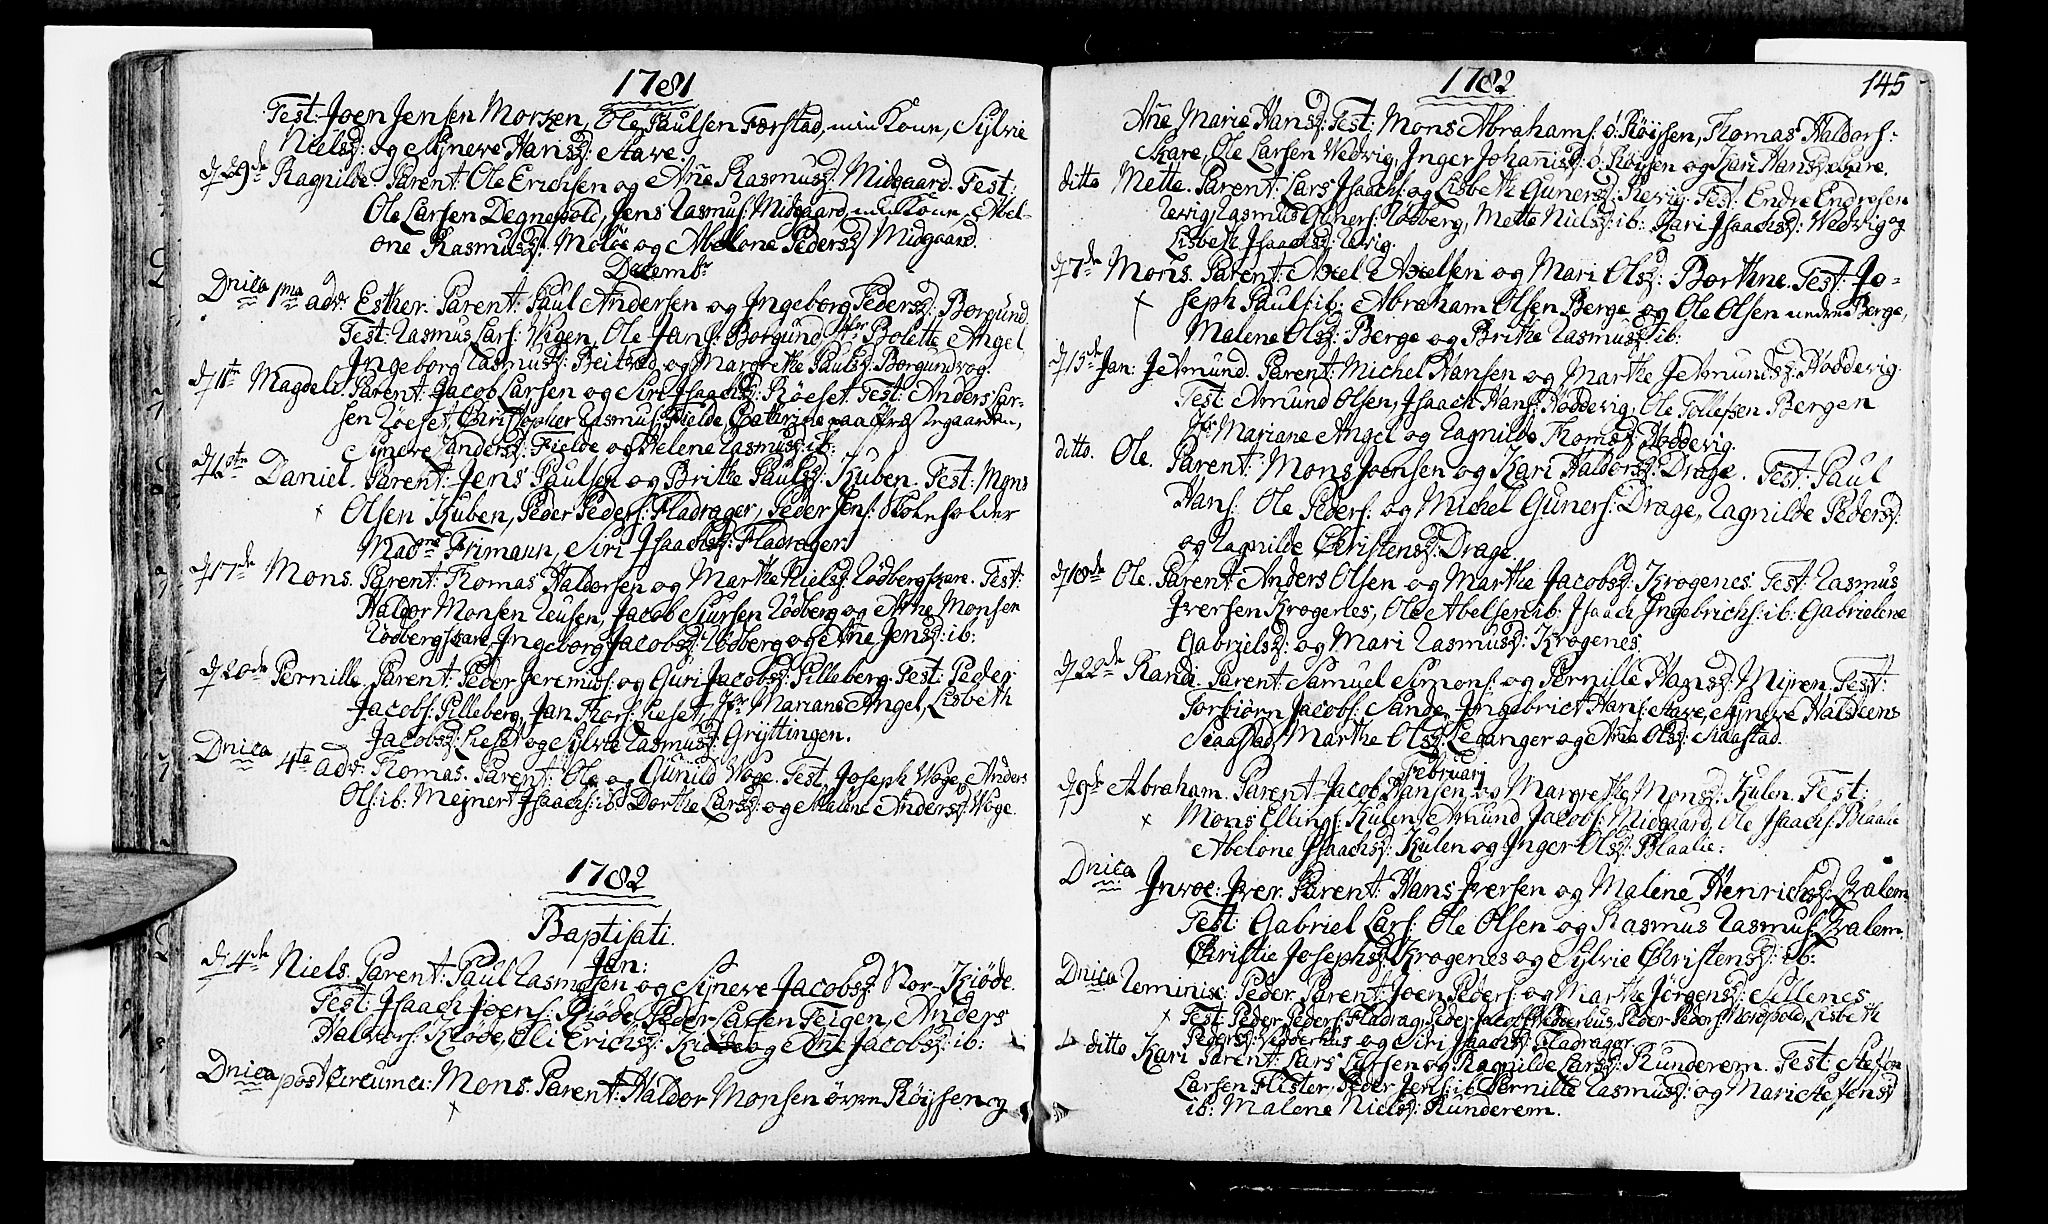 1781
Test: Joen Jensen Morken, Ole Paulsen Førstad, min Kone, Sylvie
Nielsd: og Syneve Hansd: Aare.
d 29de Ragnilde. Parent: Ole Erichsen og Añe Rasmusd: Midgaard. Test:
Ole Larsen Degnepold, Jens Rasmus: Midgaard, min Kone, Abel-
one Rasmusd: Meløe og Abelone Pedersd Midgaard.
Decembr
Dnica 1ma adv: Esther. Parent: Paul Andersen og Ingeborg Pedersd: Borgund
Test: Rasmus Lars: Vigen, Ole Jans: Borgund Jfr Bolette Angel,
Ingeborg Rasmusd: Beitved og Margrethe Paulsd: Borgundvog.
d 11te Magdeli. Parent: Jacob Larsen og Siri Isaachsd: Røeset. Test: Anders Lar-
sen Røeset, Christopher Rasmus: Fielde, Cathrine paa Præstegaarden,
Syneve Andersd: Fielde og Helene Rasmusd: ib:
d 12te Daniel. Parent: Jens Paulsen og Brithe Paulsd: Kuben. Test: Mons
Olsen Kuben, Peder Peders: Fladrager, Peder Jens: Skoleholder
Madme Frimann, Siri Isaachsd: Fladrager.
d 17de Mons. Parent: Thomas Haldorsen og Marthe Nielsd: Rødbergskare. Test:
Haldor Monsen Reusen, Jacob Siursen Rødberg og Arne Monsen
Rødbergskare, Ingeborg Jacobsd: Rødberg og Añe Jensd: ib:
d 20de Pernille. Parent: Peder Jeremis: og Guri Jacobsd: Pilleberg. Test: Peder
Jacobs: Pilleberg, Jan Thors: Lieset, Jfr Mariane Angel, Lisbeth
Jacobsd: Lieset og Sylvie Rasmusd: Gryttingen.
Dnica 4ta adv: Thomas. Parent: Ole og Gunild Woge. Test. Joseph Woge, Anders
Ols: ib: Mejnert Isaachs: ib: Dorthe Larsd: og Malene Andersd: Woge.
1782
Baptisati.
Jan:
d 4de Niels. Parent: Paul Rasmusen og Syneve Jacobsd: Nor-Kiøde.
Test: Isaach Joens: Kiøde, Peder Larsen Teigen, Anders
Halvors: Kiøde, Eli Erichsd: Kiøde og Añe Jacobsd: ib:
Dnica post Circumci: Mons. Parent: Haldor Monsen øvre Røysen og
1782
145
Añe Marie Hansd: Test: Mons Abrahams: ø: Røysen, Thomas Haldors:
Skare, Ole Larsen Wedvig, Inger Johañisd: ø: Røysen og Kari Hansd Skare.
ditto Mette. Parent: Lars Isaachs: og Lisbeth Gunersd: Revig. Test: Endre Endresen
Revig, Rasmus Guners: Rødberg, Mette Nielsd: ib: Kari Isaachsd: Wedvig og
Lisbeth Isaachsd: Revig.
d 7de Mons. Parent: Axel Axelsen og Mari Olsd: Borthne. Test: Jo-
seph Pauls: ib: Abraham Olsen Berge og Ole Olsen nedre Berge,
Malene Olsd: Berge og Brithe Rasmusd: ib:
d 15de Jan: Jetmund. Parent: Michel Hansen og Marthe Jetmundsd: Hoddevig.
Test: Amund Olsen, Isaach Hans: Hoddevig, Ole Tollefsen Bergen
Jfr Mariane Angel og Ragnilde Thomsd: Hoddevig.
ditto. Ole. Parent: Mons Joensen og Kari Haldorsd: Drage. Test: Paul
Hans: Ole Peders: og Michel Guners: Drage, Ragnilde Pedersd:
og Ragnilde Christensd: Drage.
d 18de Ole. Parent: Anders Olsen og Marthe Jacobsd: Krogenes. Test: Rasmus
Iversen Krogenes, Ole Abelsen ib: Isaach Ingebrichs: ib: Gabrielene
Gabrielsd: og Mari Rasmusd: Krogenes.
d 22de Randi. Parent: Samuel Simons: og Pernille Hansd: Myren. Test:
Torbiørn Jacobs: Sande, Ingebrict Hans: Aare, Syneve Halsteens
Staastad, Marthe Olsd: Levanger og Añe Olsd: Staastad.
Februari
d 9de Abraham. Parent: Jacob Hansen og Margrethe Monsd: Kulen. Test:
Mons Ellings: Kulen, Amund Jacobs: Midgaard, Ole Isaachs: Blaalie
Abelone Isaachsd: Kulen og Inger Olsd: Blaalie:
Dnica Invoc: Iver. Parent: Hans Iversen og Malene Henrichsd: Hvalem
Test: Gabriel Lars: Ole Olsen og Rasmus Rasmus: Hvalem.
Christie Josephsd: Krogenes og Sylvie Christensd: ib:
Dnica Reminisc: Peder. Parent: Joen Peders: og Marthe Jørgensd: Sellenes
Test: Peder Peders: Fladrag, Peder Jacobs: Hedderhus, Peder Peders: Nordpold, Lisbeth
Pedersd: Hedderhus og Siri Isaachsd: Fladrager
ditto Kari Parent: Lars Larsen og Ragnilde Larsd: Runderem. Test: Steffen
Larsen Flister, Peder Jens: ib: Pernille Rasmusd: og Marie Stefensd
ib: Malene Nielsd: Runderem.